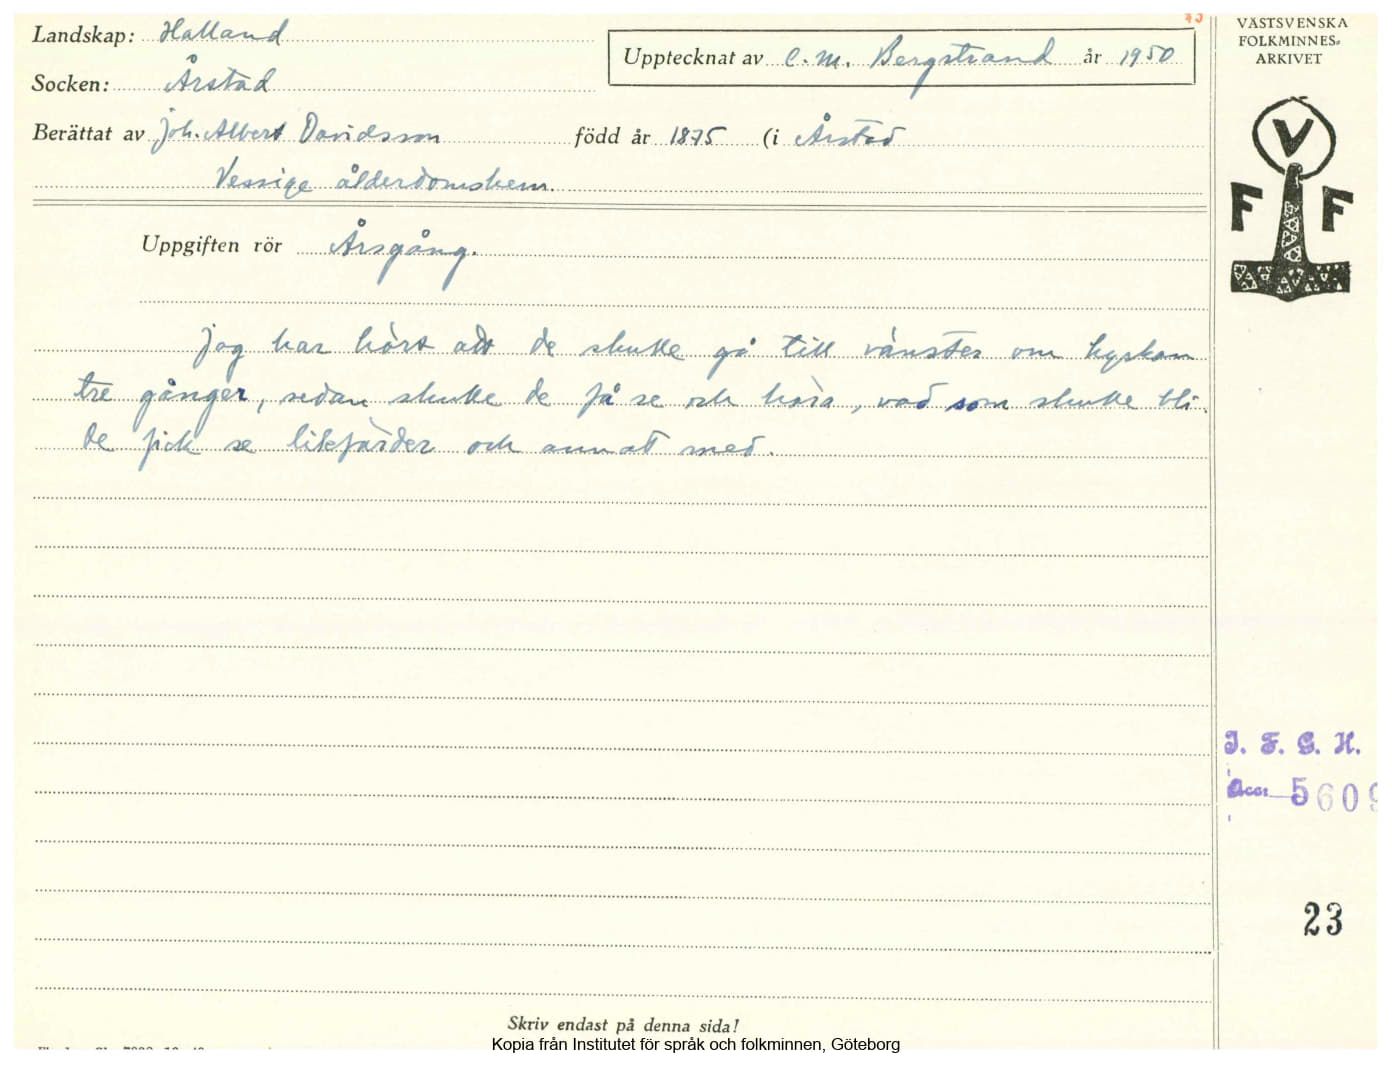 73
Landskap: Halland
Upptecknat av C. M. Bergstrand år 1950
Socken: Årstad
Berättat av Joh. Albert Davidsson född år 1875 (i Årstad
Vessige ålderdomshem.
Uppgiften rör Årsgång.
Jag har hört att de skulle gå till vänster om kyrkan
tre gånger, sedan skulle de få se och höra, vad som skulle bli.
De fick se likfärder och annat med.
Skriv endast på denna sida!
Kopia från Institutet för språk och folkminnen, Göteborg
VÄSTSVENSKA
FOLKMINNES-
ARKIVET
V
F F
I. F. G. H.
Acc: 5609
23